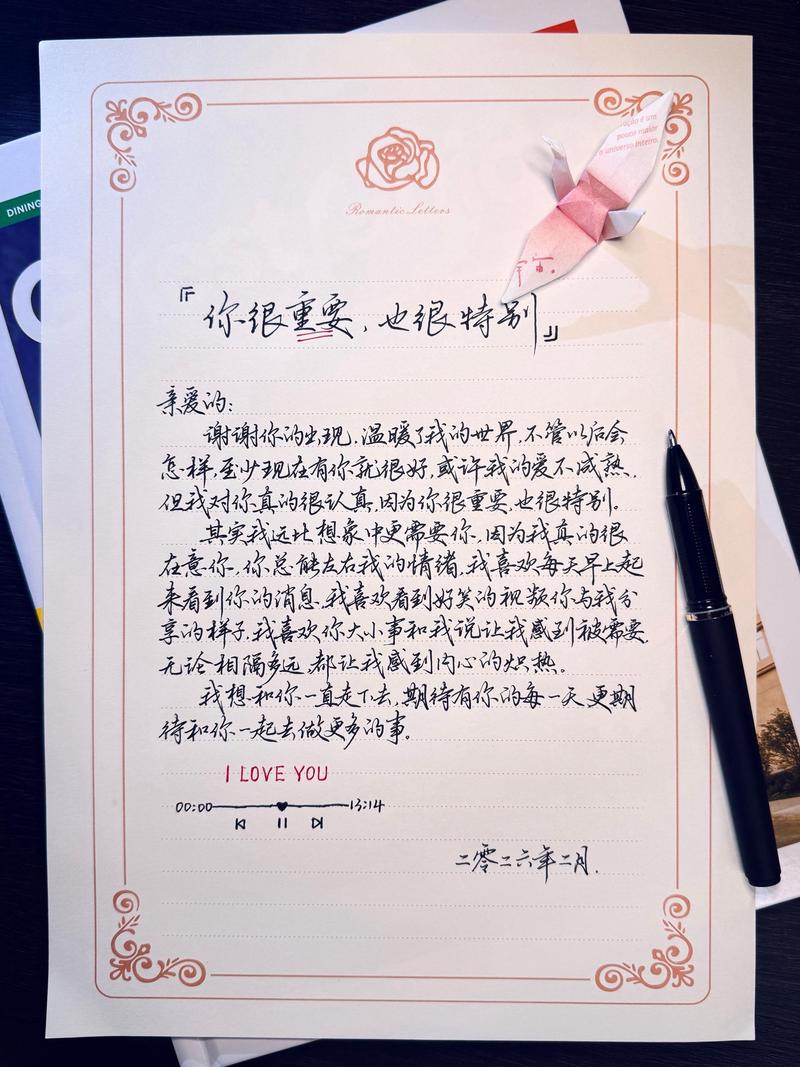 DINING
ução é um
pouco maior
o universo inteiro.
宇宙。
Romantic Letters
『你很重要，也很特别』
亲爱的：
谢谢你的出现，温暖了我的世界，不管以后会
怎样，至少现在有你就很好，或许我的爱不成熟，
但我对你真的很认真，因为你很重要，也很特别。
其实我远比想象中更需要你，因为我真的很
在意你，你总能左右我的情绪，我喜欢每天早上起
来看到你的消息，我喜欢看到好笑的视频你与我分
享的样子，我喜欢你大小事和我说让我感到被需要，
无论相隔多远，都让我感到内心的炽热。
我想和你一直走下去，期待有你的每一天，更期
待和你一起去做更多的事。
I LOVE YOU
00:00 13:14
二零二六年二月.